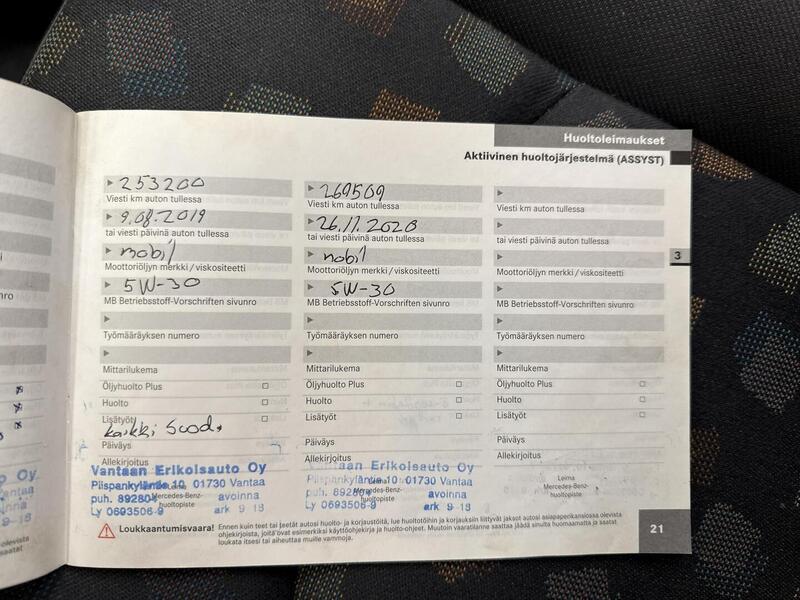 Huoltoleimaukset
Aktiivinen huoltojärjestelmä (ASSYST)
253200
Viesti km auton tullessa
9.08.2019
tai viesti päivinä auton tullessa
mobil
Moottoriöljyn merkki / viskositeetti
5W-30
MB Betriebsstoff-Vorschriften sivunro
Työmääräyksen numero
Mittarilukema
Öljyhuolto Plus
Huolto
Lisätyöt
kaikki Suod.
Päiväys
Allekirjoitus
Vantaan Erikoisauto Oy
Piispankyläntie 10 01730 Vantaa
puh. 892804 avoinna
Mercedes-Benz-
huoltopiste
Ly 0693506-9 ark 9-18
269509
Viesti km auton tullessa
26.11.2020
tai viesti päivinä auton tullessa
mobil
Moottoriöljyn merkki / viskositeetti
5W-30
MB Betriebsstoff-Vorschriften sivunro
Työmääräyksen numero
Mittarilukema
Öljyhuolto Plus
Huolto
Lisätyöt
Päiväys
Allekirjoitus
Vantaan Erikoisauto Oy
Piispankyläntie 10 01730 Vantaa
puh. 892804 avoinna
Mercedes-Benz-
huoltopiste
Ly 0693506-9 ark 9-18
Viesti km auton tullessa
tai viesti päivinä auton tullessa
Moottoriöljyn merkki / viskositeetti
MB Betriebsstoff-Vorschriften sivunro
Työmääräyksen numero
Mittarilukema
Öljyhuolto Plus
Huolto
Lisätyöt
Päiväys
Allekirjoitus
Leima
Mercedes-Benz-
huoltopiste
3
Loukkaantumisvaara! Ennen kuin teet tai jaetät autosi huolto- ja korjaustöitä, lue huoltotöihin ja korjauksiin liittyvät jaksot autosi asiapaperikansiossa olevista
ohjekirjoista, joita ovat esimerkiksi käyttöohjekirja ja huolto-ohjeet. Muutoin vaaratilanne saattaa jäädä sinulta huomaamatta ja saatat
loukata itsesi tai aiheuttaa muille vammoja.
21